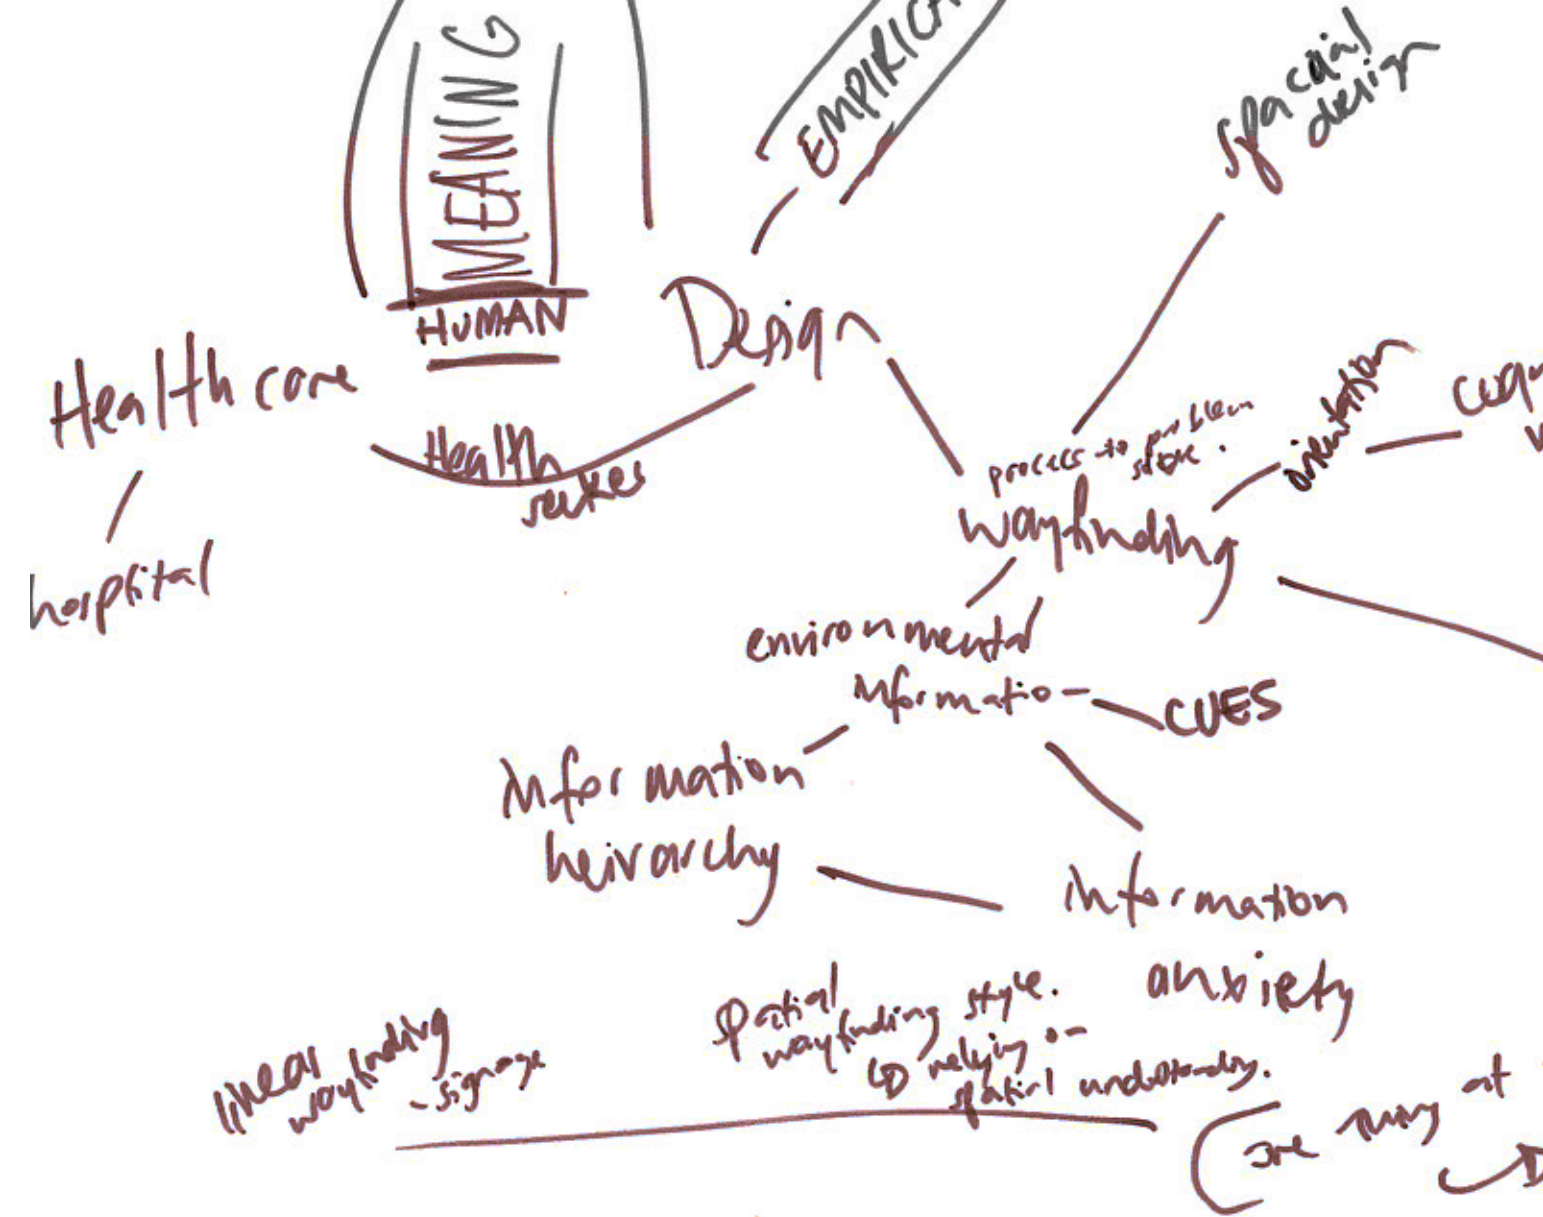 MEANING
HUMAN
EMPIRICA
spacial
design
Design
Health care
Health
hospital
process to problem
wayfinding
orientation
environmental
informatio-
CUES
information
heirarchy
information
anxiety
linear
wayfinding
- signage
spatial
wayfinding style.
↳ relying on
spatial understanding.
at